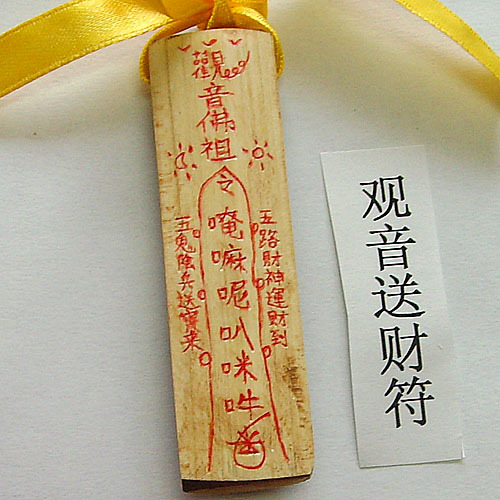 觀音佛祖
令
唵嘛呢叭咪吽
五路財神運財到
五鬼陰兵送寶来
观音送财符